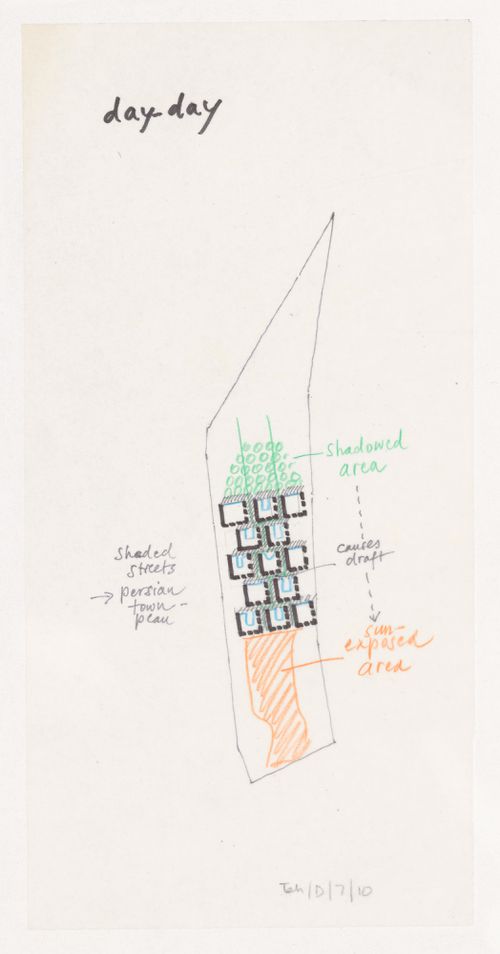 day-day
shadowed
area
causes
draft
shaded
streets
→ persian
town-
sun-
exposed
area
Teh/D/7/10